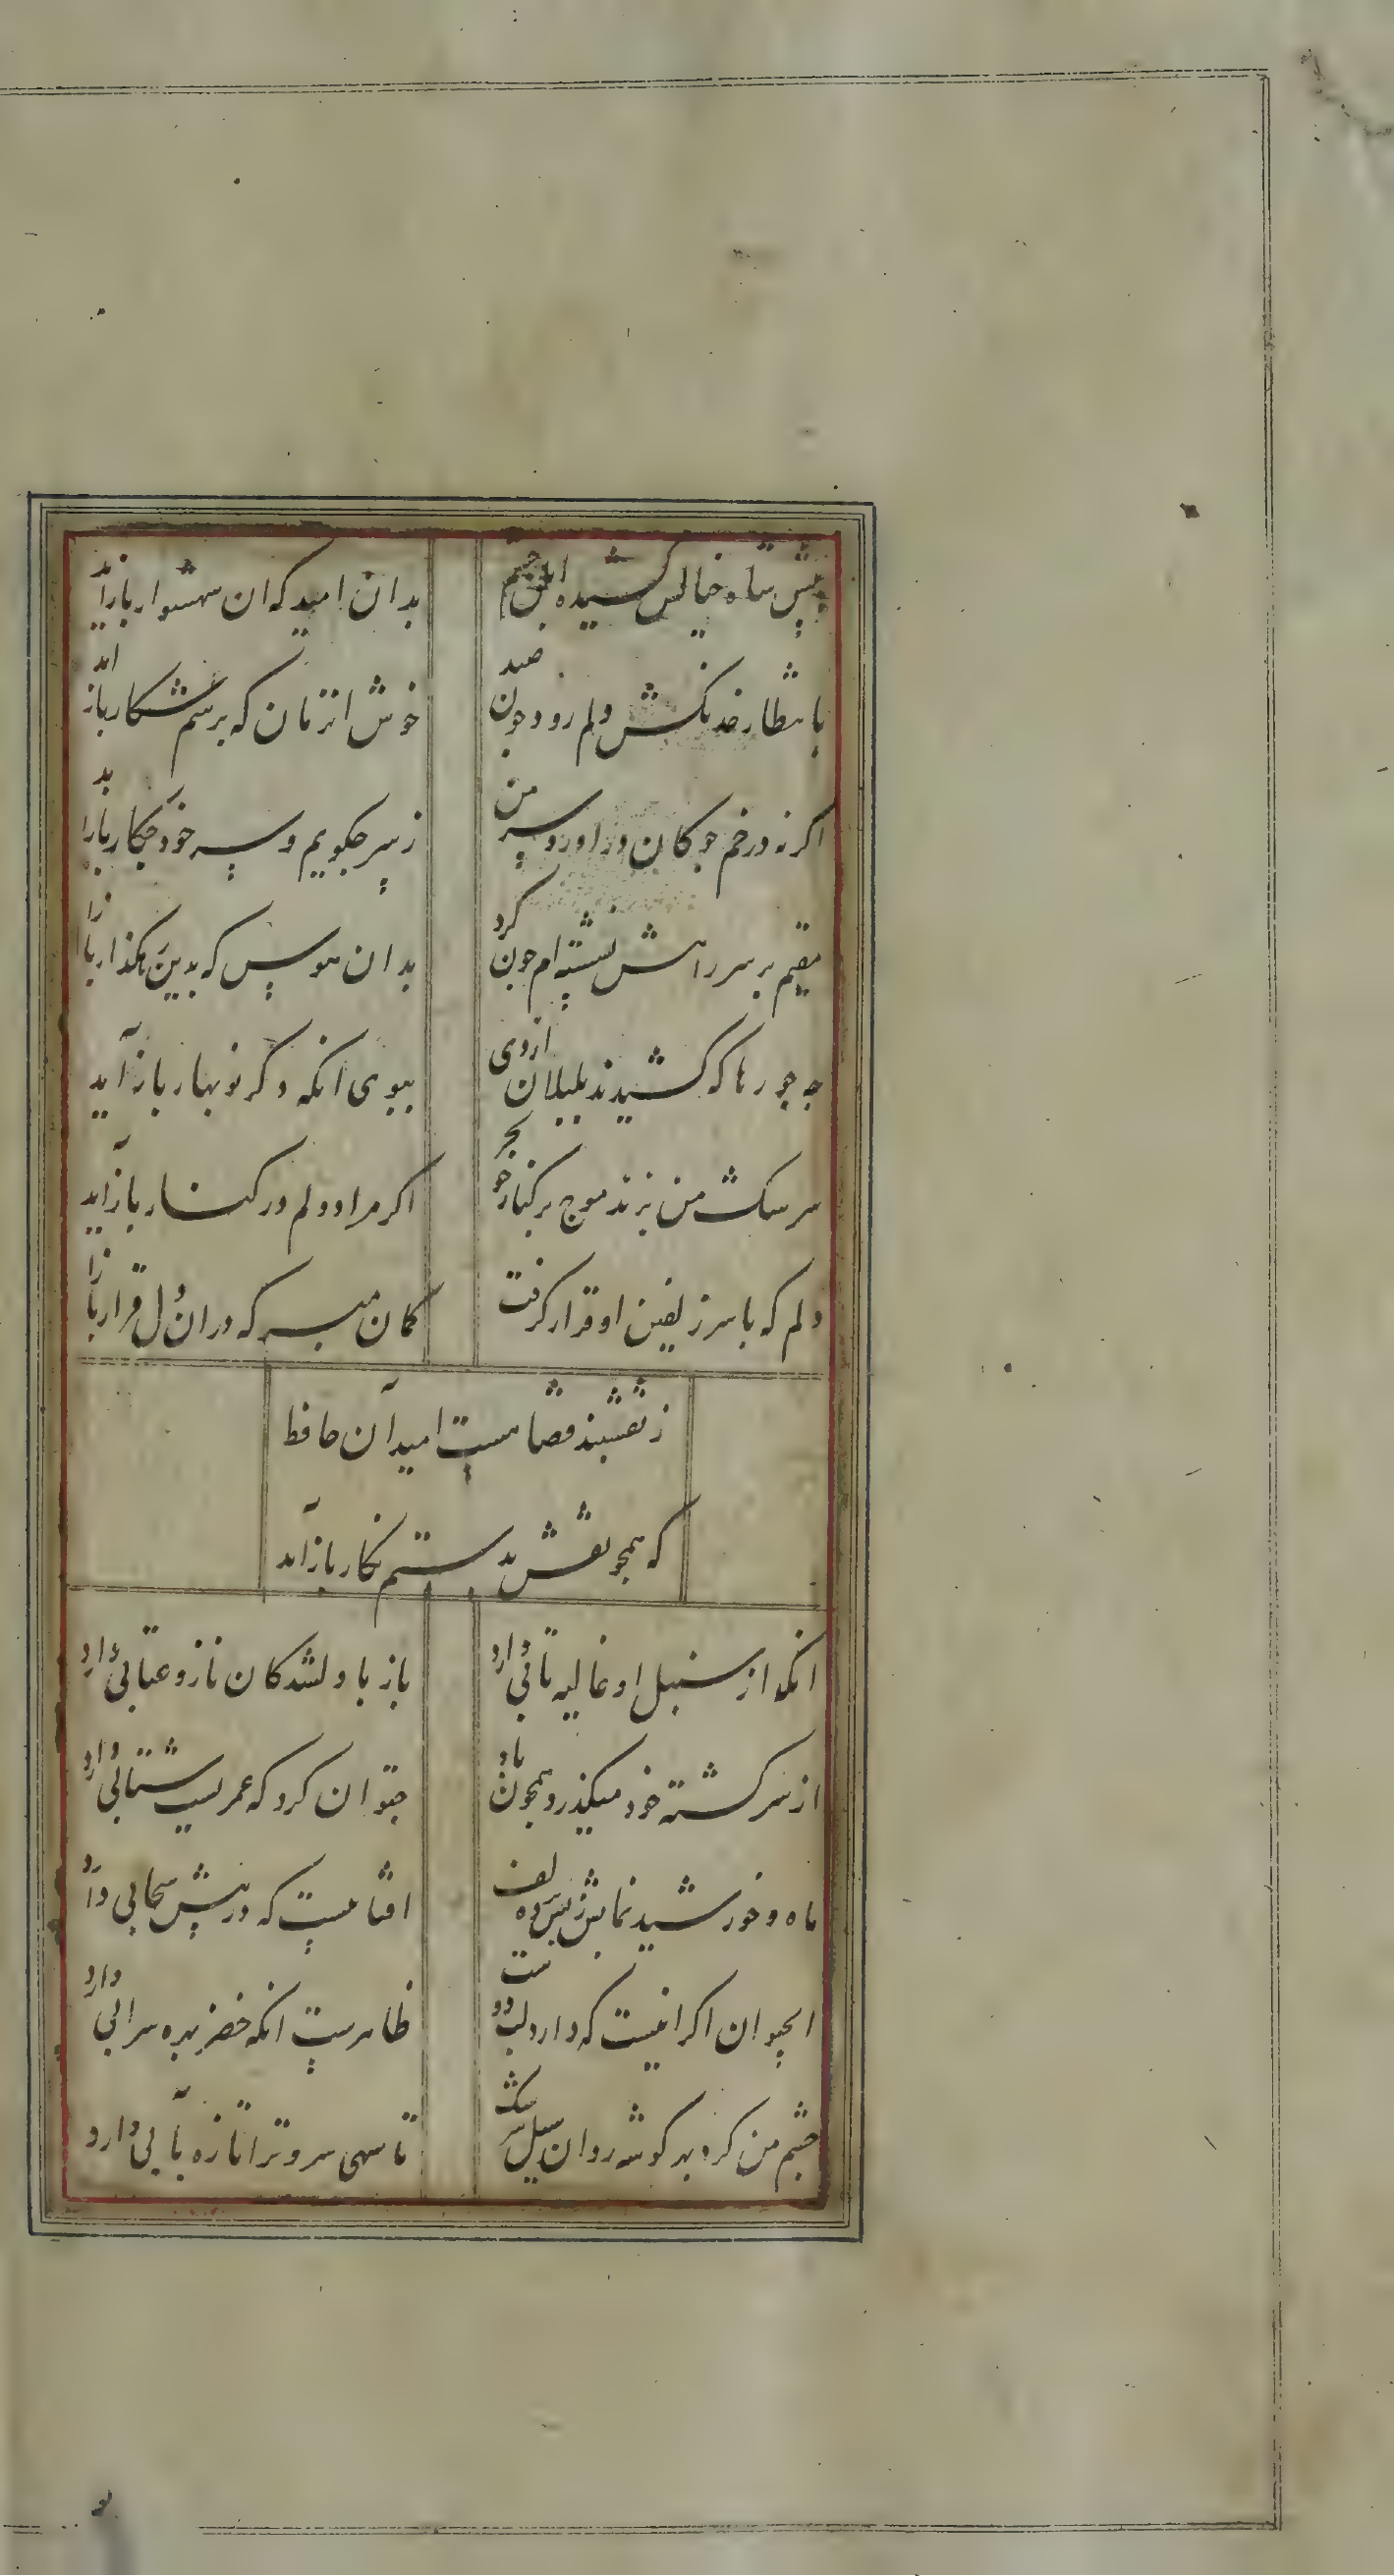 پیش شاه خیالش کشیده ابلق چشم
بدان امید که ان شهسوار باز اید
بانتظار خدنکش دلم رود چون صید
خوش انزمان که برسم شکار باز اید
اکر نه در خم چوکان در اورد سر من
ز سر چکویم و سر خود چکار باز اید
مقیم بر سر راهش نشسته ام چون کرد
بدان هوس که بدین رهکذار باز ا
چه جورها که کشیدند بلبلان از دی
ببوی انکه دکر نوبهار باز آید
سرشک من بزند موج بر کنار چو بحر
اکر مراد دلم در کنار باز آید
دلم که با سر زلفین او قرار کرفت
کمان مبر که در ان دل قرار باز ا
ز نقشبند قضا هست امید آن حافظ
که همچو نقش بدستم نکار باز آید
انکه از سنبل او غالیه تابی دارد
باز با دلشدکان ناز و عتابی دارد
از سر کشته خود میکذرد همچون باد
چتوان کرد که عمریست شتابی دارد
ماه و خورشید نمایش ز پس پرده زلف
افتابیست که در پیش سحابی دارد
ابحیوان اکر اینست که دارد لب دوست
ظاهرست انکه خضر بهره سرابی دارد
چشم من کرد بهر کوشه روان سیل سرشک
تا سهی سرو ترا تازه بآبی دارد